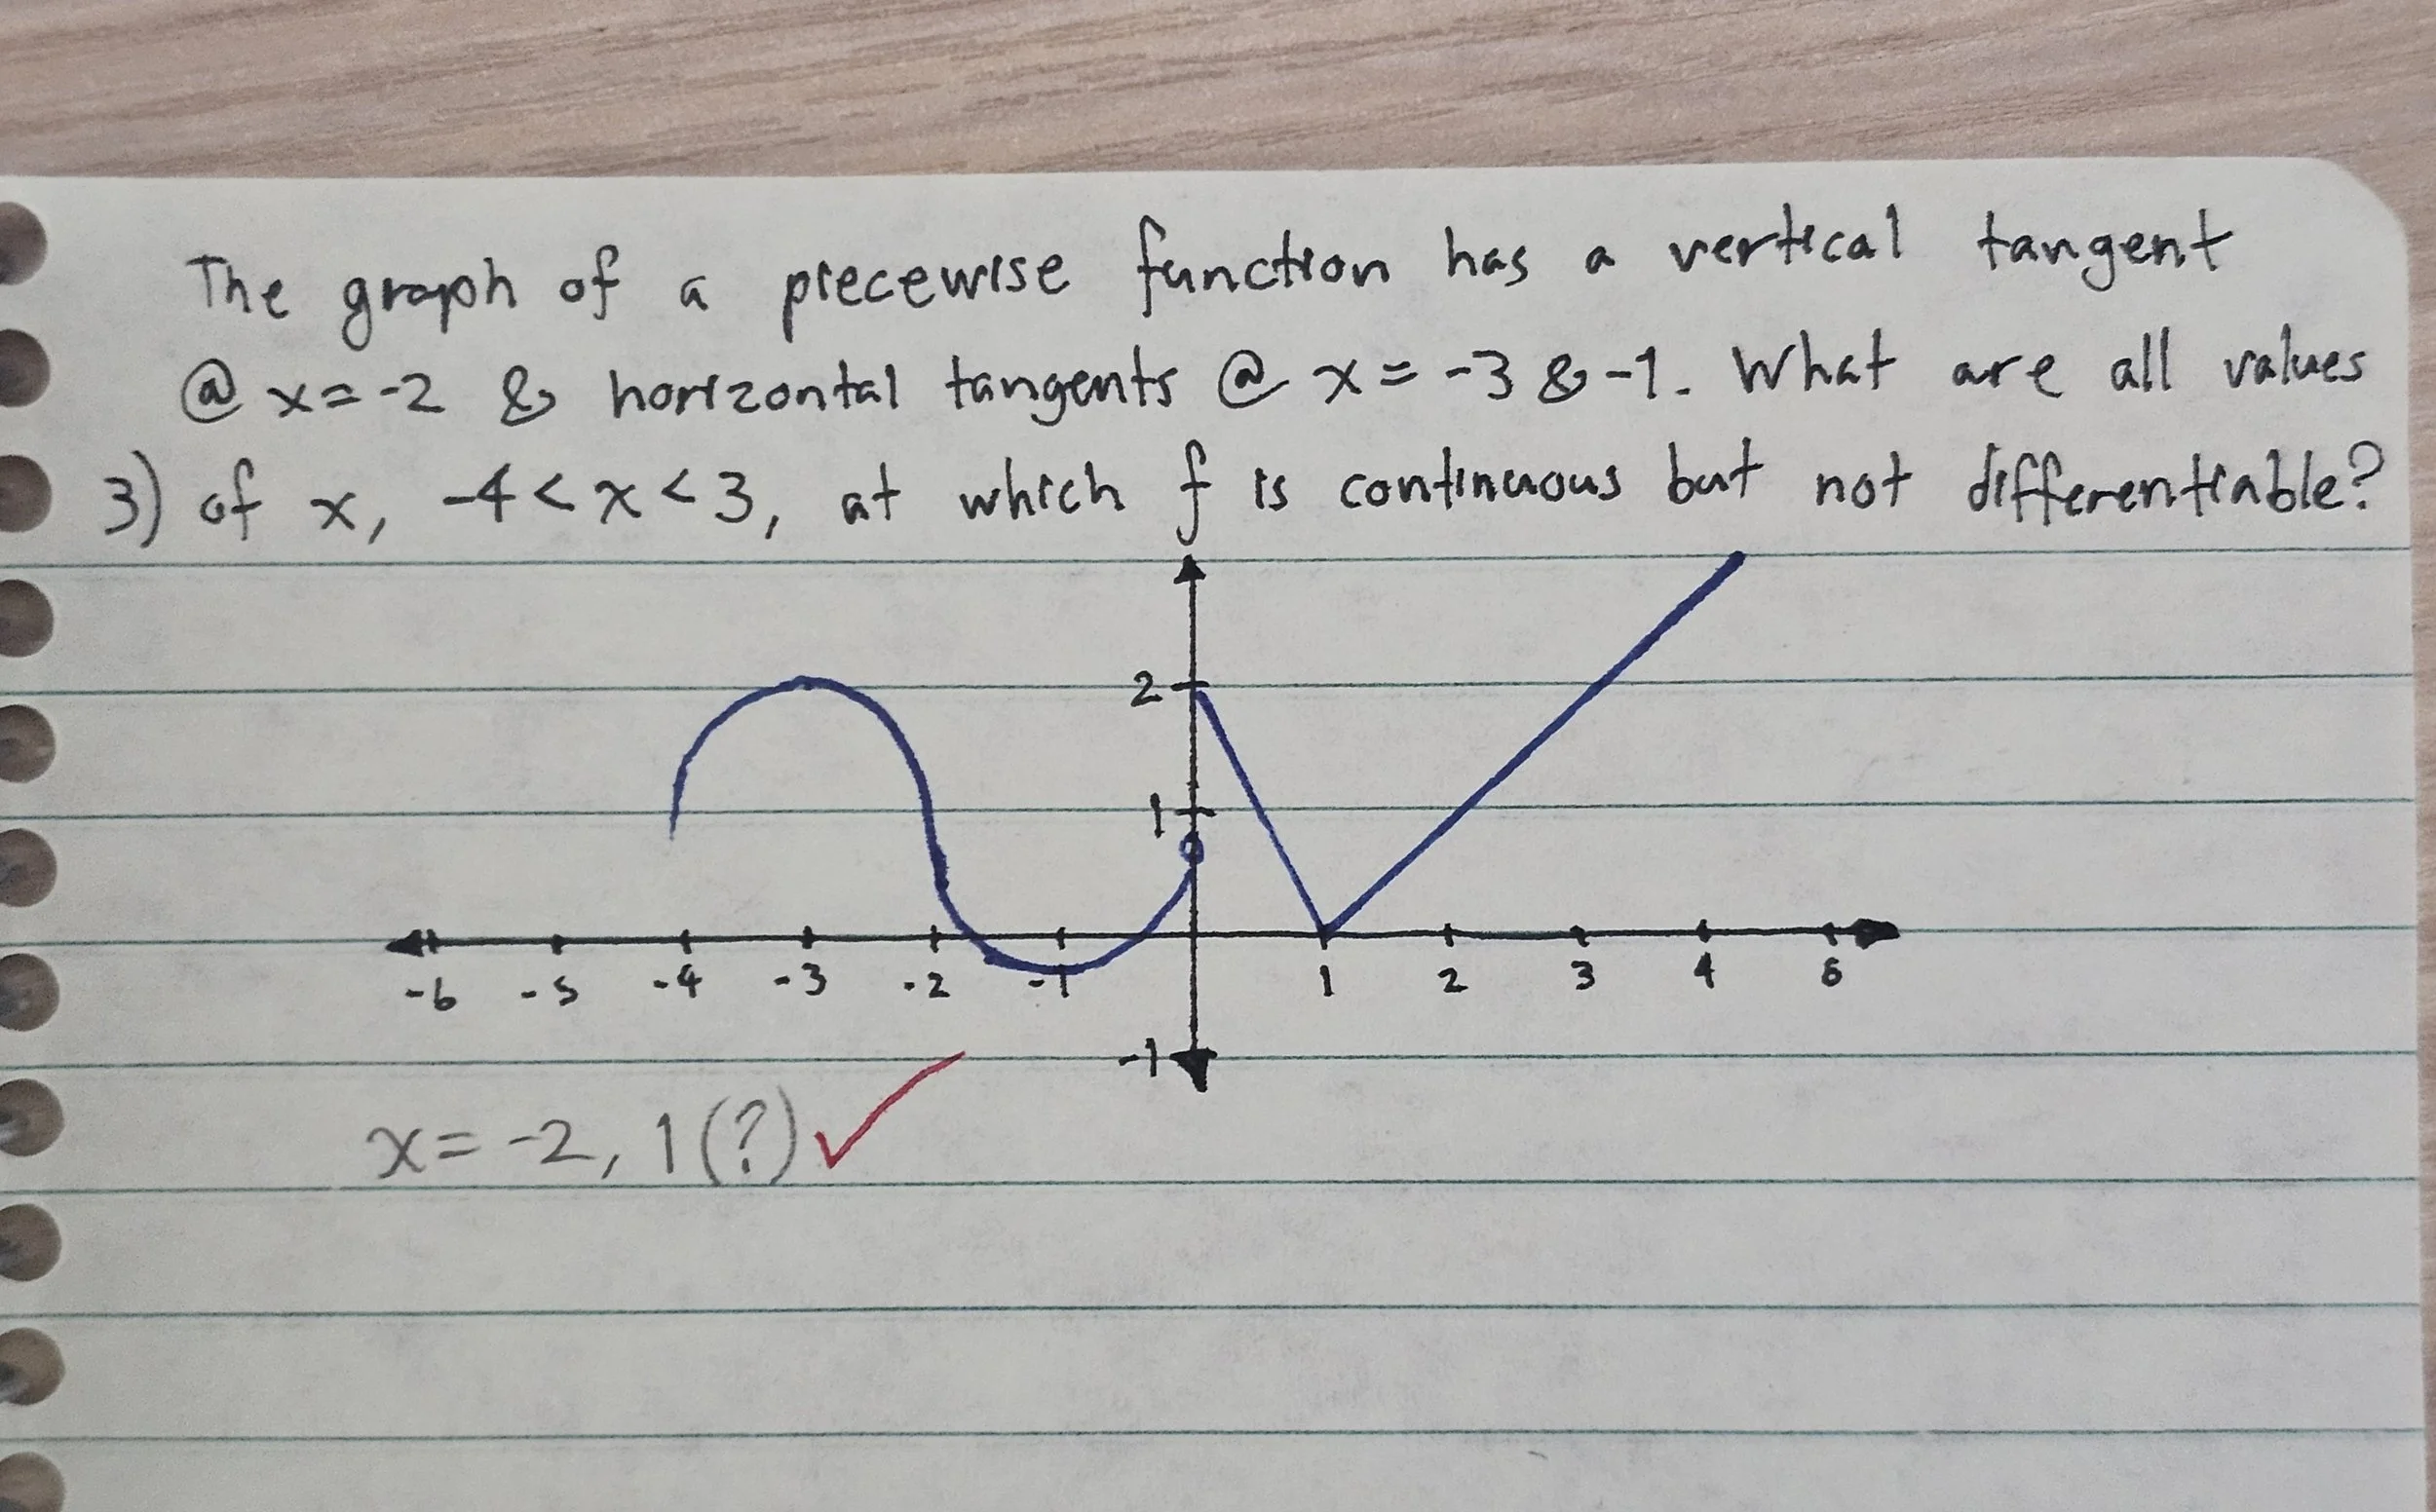 The graph of a piecewise function has a vertical tangent
@ x = -2 & horizontal tangents @ x = -3 & -1. What are all values
3) of x, -4 < x < 3, at which f is continuous but not differentiable?
2
1
-6 -5 -4 -3 -2 -1 1 2 3 4 5
-1
x = -2, 1 (?) ✓